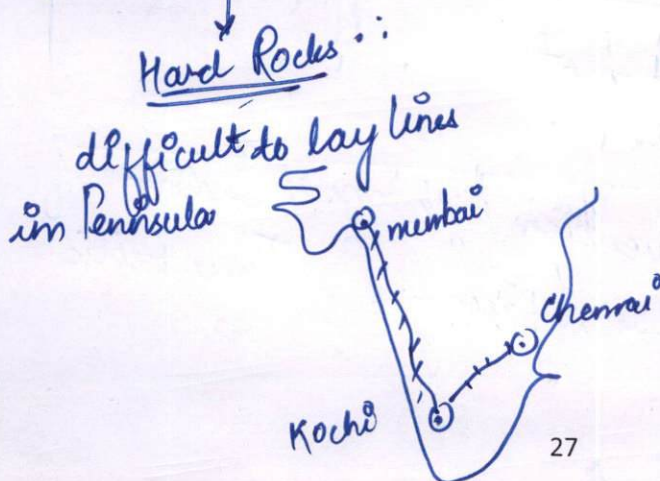 Hard Rocks ∵
difficult to lay lines
in Peninsula
mumbai
Chennai
Kochi
27